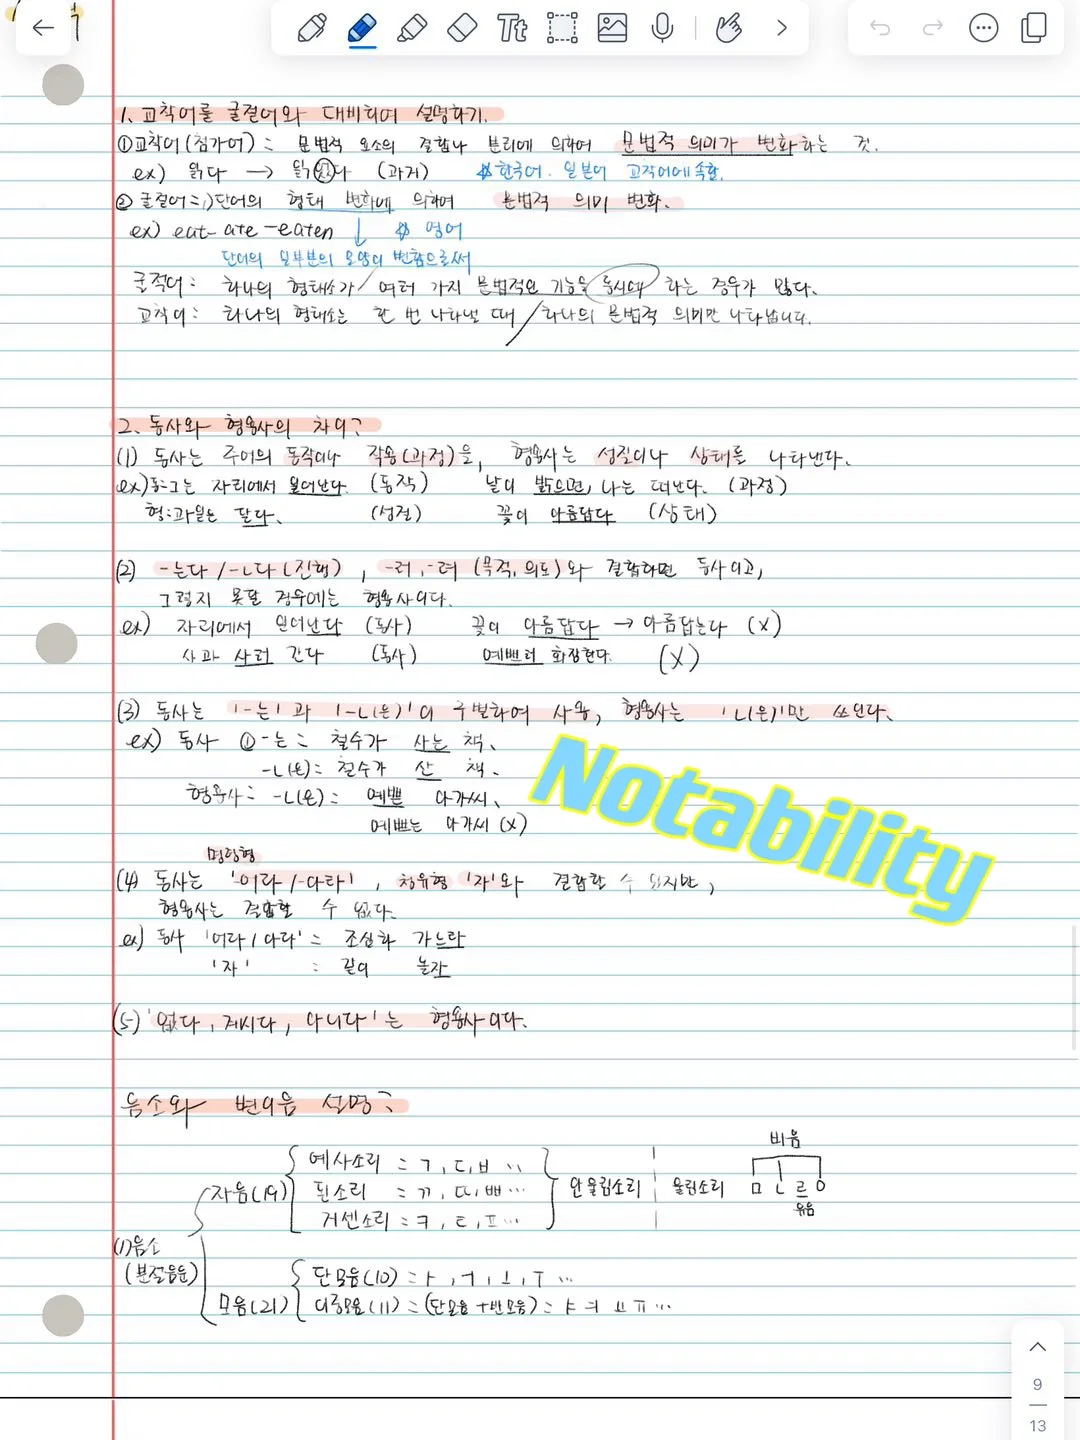 Tt
1. 교착어를 굴절어와 대비하여 설명하기.
①교착어(첨가어) : 문법적 요소의 결합이나 분리에 의하여 문법적 의미가 변화하는 것.
ex) 읽다 → 읽었다 (과거) ☆한국어. 일본어 교착어에 속함.
② 굴절어 : 단어의 형태 변화에 의하여 문법적 의미 변화.
ex) eat-ate-eaten ↓ ☆ 영어
단어의 일부분의 모양이 변함으로써
굴절어: 하나의 형태소가 / 여러 가지 문법적인 기능을 동시에 하는 경우가 많다.
교착어: 하나의 형태소는 한 번 나타날 때 / 하나의 문법적 의미만 나타냅니다.
2. 동사와 형용사의 차이?
(1) 동사는 주어의 동작이나 작용(과정)을, 형용사는 성질이나 상태를 나타낸다.
ex)동:그는 자리에서 일어난다. (동작) 날이 밝으면, 나는 떠난다. (과정)
형:과일은 달다. (성질) 꽃이 아름답다 (상태)
(2) -는다/-ㄴ다(진행), -러,-려 (목적, 의도)와 결합하면 동사이고,
그렇지 못할 경우에는 형용사이다.
ex) 자리에서 일어난다 (동사) 꽃이 아름답다 → 아름답는다 (X)
사과 사러 간다 (동사) 예쁘러 화장한다. (X)
(3) 동사는 '-는'과 '-ㄴ(은)'이 구별하여 사용, 형용사는 'ㄴ(은)'만 쓰인다.
ex) 동사 ① -는 : 철수가 사는 책.
-ㄴ(은) : 철수가 산 책.
형용사 : -ㄴ(은) : 예쁜 아가씨.
예쁘는 아가씨 (X)
명령형
(4) 동사는 '-어라/-아라', 청유형 '자'와 결합할 수 있지만,
형용사는 결합할 수 없다.
ex) 동사 '어라/아라' : 조심화 가느라
'자' : 같이 놀자
(5) '없다, 계시다, 아니다'는 형용사이다.
음소와 변이음 설명?
비음
예사소리 = ㄱ, ㄷ, ㅂ ...
자음(19) 된소리 = ㄲ, ㄸ, ㅃ ... 안울림소리 울림소리 ㅁ ㄴ ㄹ ㅇ
거센소리 = ㅋ, ㅌ, ㅍ ... 유음
(1)음소
(분절음운) 단모음(10) = ㅏ, ㅓ, ㅗ, ㅜ ...
모음(21) 이중모음(11) = (단모음+반모음) = ㅑ ㅕ ㅛ ㅠ ...
Notability
9
13